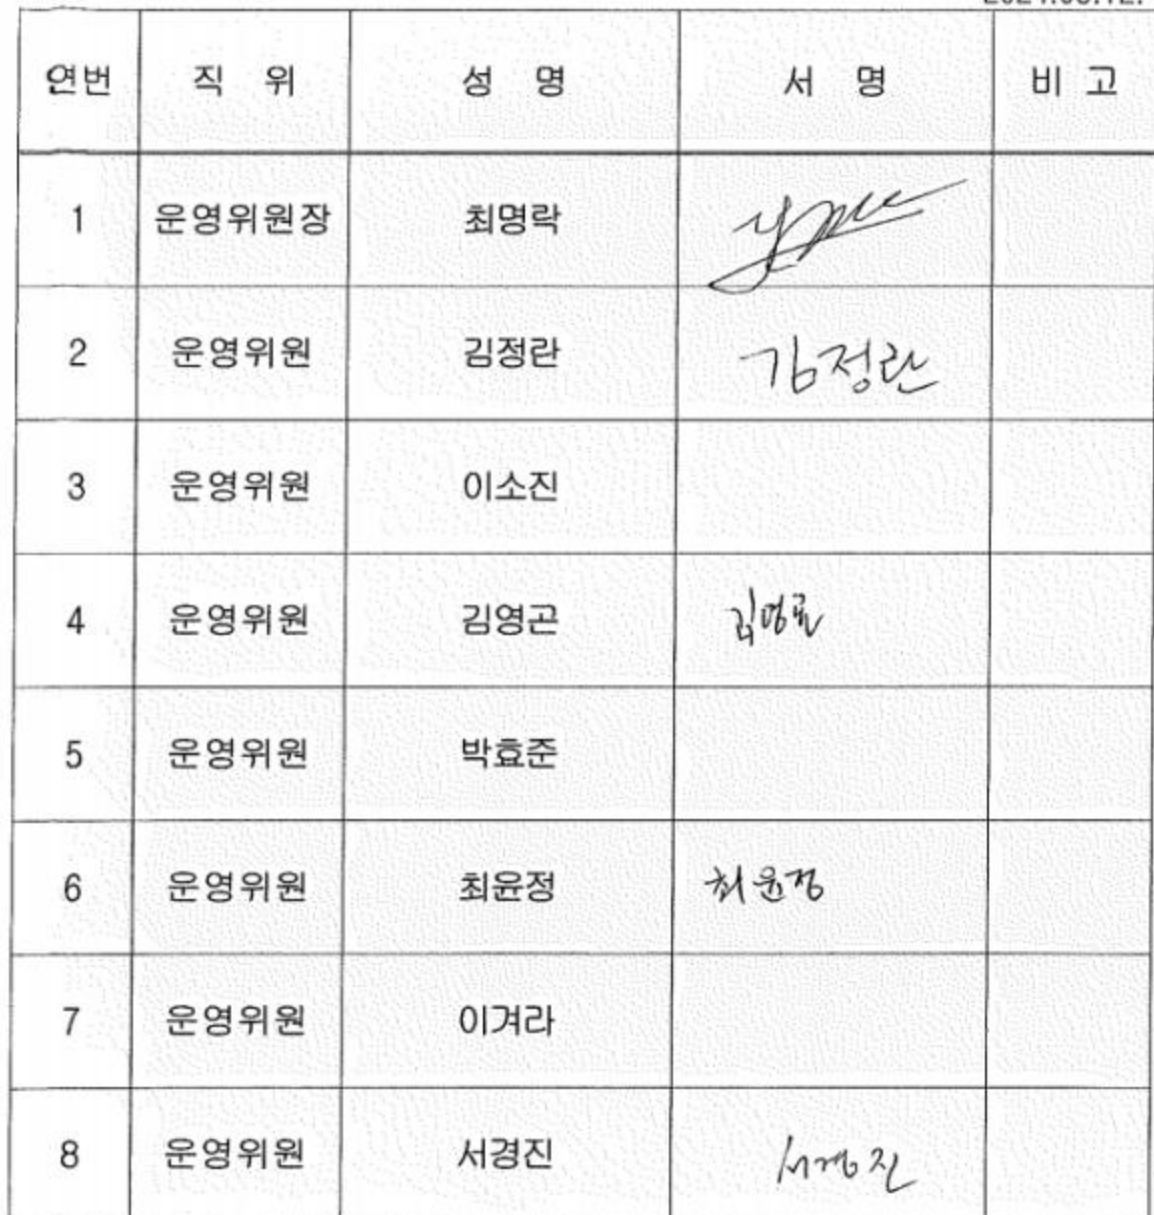 연번 직 위 성 명 서 명 비 고
1 운영위원장 최명락
2 운영위원 김정란 김정란
3 운영위원 이소진
4 운영위원 김영곤 김영곤
5 운영위원 박효준
6 운영위원 최윤정 최윤정
7 운영위원 이겨라
8 운영위원 서경진 서경진